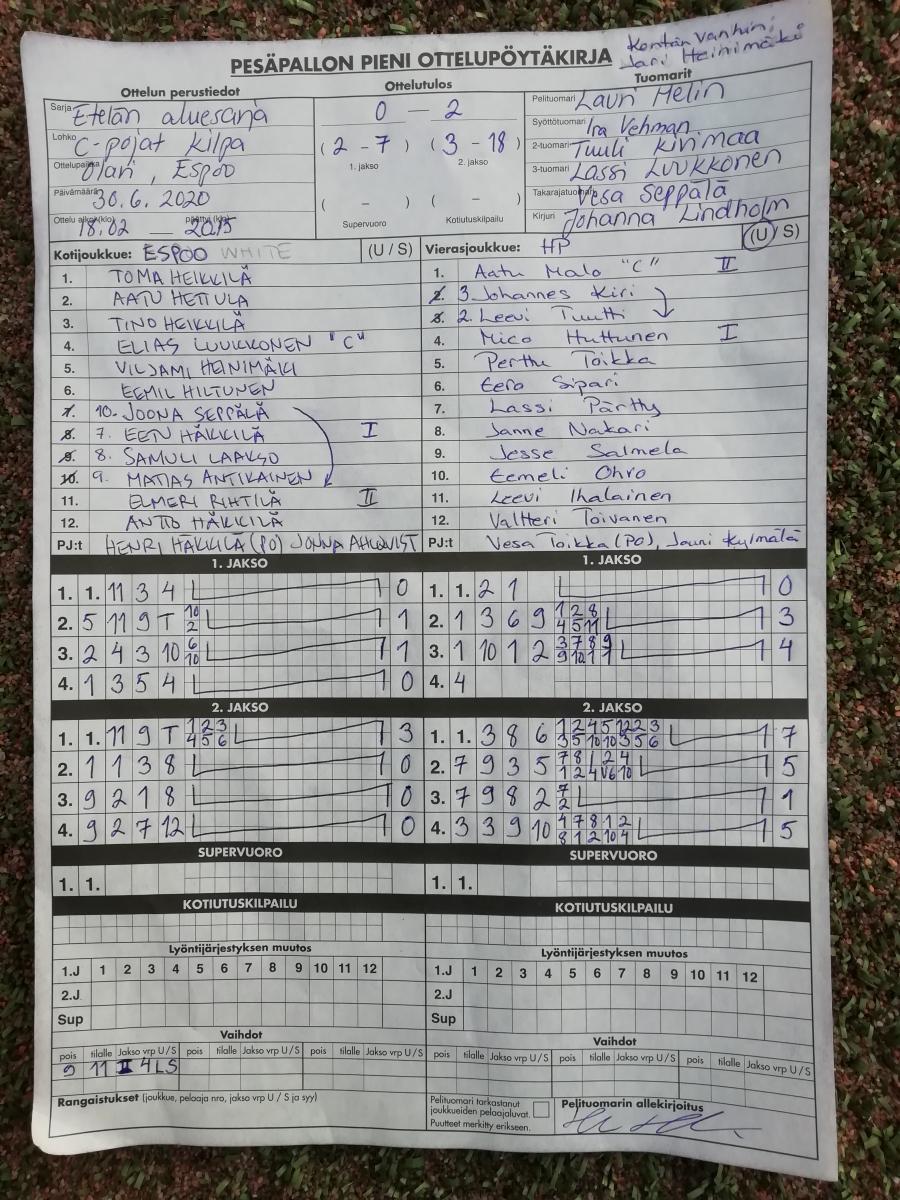 Kentän vanhin:
Jari Heinimäki
PESÄPALLON PIENI OTTELUPÖYTÄKIRJA
Ottelun perustiedot
Ottelutulos
Tuomarit
Sarja Etelän aluesarja
0 — 2
Pelituomari Lauri Melin
Syöttötuomari Ira Vehman
Lohko C-pojat kilpa
(2 - 7) (3 - 18)
1. jakso 2. jakso
2-tuomari Tuuli Kirimaa
3-tuomari Lassi Luukkonen
Ottelupaikka Olari, Espoo
Päivämäärä 30.6.2020
( - ) ( - )
Takarajatuomari Vesa Seppälä
Ottelu alkoi (klo) 18.02 — päättyi (klo) 20.15
Supervuoro Kotiutuskilpailu
Kirjuri Johanna Lindholm
Kotijoukkue: ESPOO WHITE (U / S)
Vierasjoukkue: HP (U / S)
1. TOMA HEIKKILÄ
2. AATU HETTULA
3. TINO HEIKKILÄ
4. ELIAS LUUKKONEN "C"
5. VILJAMI HEINIMÄKI
6. EEMIL HILTUNEN
7. 10. JOONA SEPPÄLÄ
8. 7. EETU HÄKKILÄ I
9. 8. SAMULI LAAKSO
10. 9. MATIAS ANTIKAINEN
11. ELMERI RIHTILÄ II
12. ANTTO HÄKKILÄ
PJ:t HENRI HÄKKILÄ (PO) JONNA AHLQVIST
1. Aatu Malo "C" II
2. 3. Johannes Kiri
3. 2. Leevi Tuutti
4. Mico Huttunen I
5. Perttu Toikka
6. Eero Sipari
7. Lassi Pärtty
8. Janne Nakari
9. Jesse Salmela
10. Eemeli Ohro
11. Leevi Ihalainen
12. Valtteri Toivanen
PJ:t Vesa Toikka (PO), Jauri Kylmälä
1. JAKSO
1. 1. 11 3 4 0
2. 5 11 9 T 10 1
2
3. 2 4 3 10 6 1
10
4. 1 3 5 4 0
1. JAKSO
1. 1. 2 1 0
2. 1 3 6 9 1 2 8 3
4 5 11
3. 1 10 1 2 3 7 8 9 4
9 10 1 1
4. 4
2. JAKSO
1. 1. 11 9 T 1 2 3 3
4 5 6
2. 1 1 3 8 0
3. 9 2 1 8 0
4. 9 2 7 12 0
2. JAKSO
1. 1. 3 8 6 1 2 4 5 12 2 3 7
3 5 10 10 3 5 6
2. 7 9 3 5 7 8 1 2 4 5
1 2 4 V6 10
3. 7 9 8 2 7 1
2
4. 3 3 9 10 4 7 8 1 2 5
8 1 2 10 4
SUPERVUORO
1. 1.
SUPERVUORO
1. 1.
KOTIUTUSKILPAILU
KOTIUTUSKILPAILU
Lyöntijärjestyksen muutos
1.J 1 2 3 4 5 6 7 8 9 10 11 12
2.J
Sup
Lyöntijärjestyksen muutos
1.J 1 2 3 4 5 6 7 8 9 10 11 12
2.J
Sup
Vaihdot
pois tilalle Jakso vrp U/S pois tilalle Jakso vrp U/S pois tilalle Jakso vrp U/S
9 11 II 4LS
Vaihdot
pois tilalle Jakso vrp U/S pois tilalle Jakso vrp U/S pois tilalle Jakso vrp U/S
Rangaistukset (joukkue, pelaaja nro, jakso vrp U / S ja syy)
Pelituomari tarkastanut
joukkueiden pelaajaluvat.
Puutteet merkitty erikseen.
Pelituomarin allekirjoitus